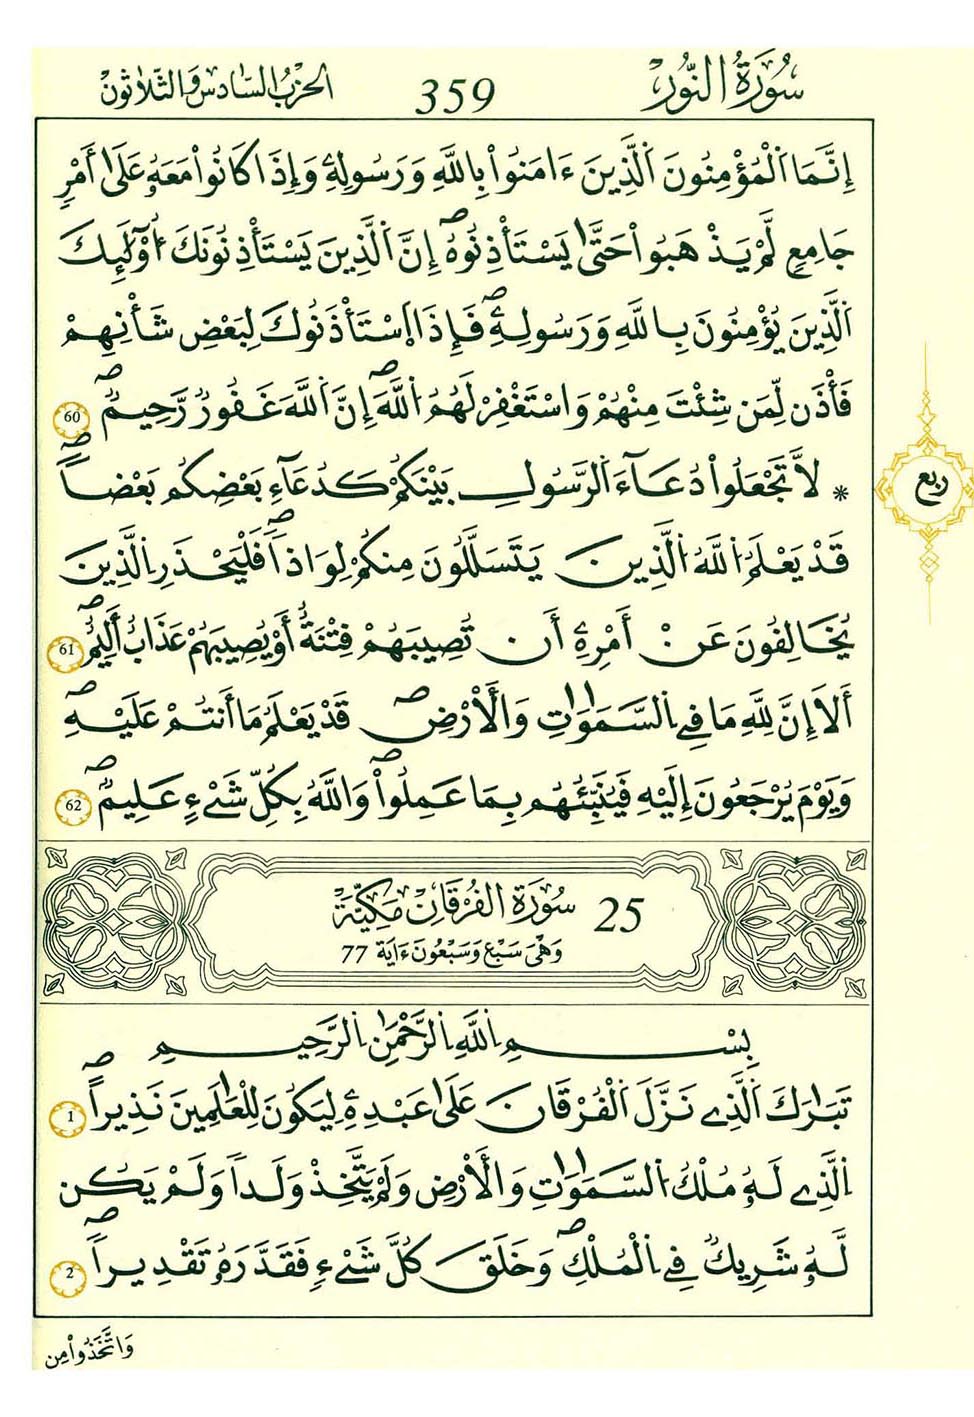 سُورَةُ النُّورِ
359
الحِزْبُ السَّادِسُ وَالثَّلَاثُونَ
إِنَّمَا اَ۬لْمُؤْمِنُونَ اَ۬لذِينَ ءَامَنُواْ بِاللَّهِ وَرَسُولِهِۦ وَإِذَا كَانُواْ مَعَهُۥ عَلَىٰٓ أَمْرٖ
جَامِعٖ لَّمْ يَذْهَبُواْ حَتَّىٰ يَسْتَأْذِنُوهُۖ إِنَّ اَ۬لذِينَ يَسْتَأْذِنُونَكَ أُوْلَٰٓئِكَ
اَ۬لذِينَ يُؤْمِنُونَ بِاللَّهِ وَرَسُولِهِۦۖ فَإِذَا اَ۪سْتَأْذَنُوكَ لِبَعْضِ شَأْنِهِمْ
فَأْذَن لِّمَن شِئْتَ مِنْهُمْ وَاسْتَغْفِرْ لَهُمُ اُ۬للَّهَۖ إِنَّ اَ۬للَّهَ غَفُورٞ رَّحِيمٞۖ 60
* لَّا تَجْعَلُواْ دُعَآءَ اَ۬لرَّسُولِ بَيْنَكُمْ كَدُعَآءِ بَعْضِكُم بَعْضاٗۖ
قَدْ يَعْلَمُ اُ۬للَّهُ اُ۬لذِينَ يَتَسَلَّلُونَ مِنكُمْ لِوَاذاٗۖ فَلْيَحْذَرِ اِ۬لذِينَ
يُخَالِفُونَ عَنْ أَمْرِهِۦٓ أَن تُصِيبَهُمْ فِتْنَةٌ أَوْ يُصِيبَهُمْ عَذَابٌ أَلِيمٌۖ 61
أَلَآ إِنَّ لِلهِ مَا فِے اِ۬لسَّمَٰوَٰتِ وَالْأَرْضِۖ قَدْ يَعْلَمُ مَآ أَنتُمْ عَلَيْهِۖ
وَيَوْمَ يُرْجَعُونَ إِلَيْهِ فَيُنَبِّئُهُم بِمَا عَمِلُواْۖ وَاللَّهُ بِكُلِّ شَےْءٍ عَلِيمٞۖ 62
25 سُورَةُ الفُرْقَانِ مَكِّيَّة
وَهْيَ سَبْعٌ وَسَبْعُونَ ءَايَة 77
بِسْمِ اِ۬للَّهِ اِ۬لرَّحْمَٰنِ اِ۬لرَّحِيمِ
تَبَٰرَكَ اَ۬لذِے نَزَّلَ اَ۬لْفُرْقَانَ عَلَىٰ عَبْدِهِۦ لِيَكُونَ لِلْعَٰلَمِينَ نَذِيراًۖ 1
اِ۬لذِے لَهُۥ مُلْكُ اُ۬لسَّمَٰوَٰتِ وَالْأَرْضِ وَلَمْ يَتَّخِذْ وَلَداٗ وَلَمْ يَكُن
لَّهُۥ شَرِيكٞ فِے اِ۬لْمُلْكِۖ وَخَلَقَ كُلَّ شَےْءٖ فَقَدَّرَهُۥ تَقْدِيراٗۖ 2
ربع
وَاتَّخَذُواْ مِن